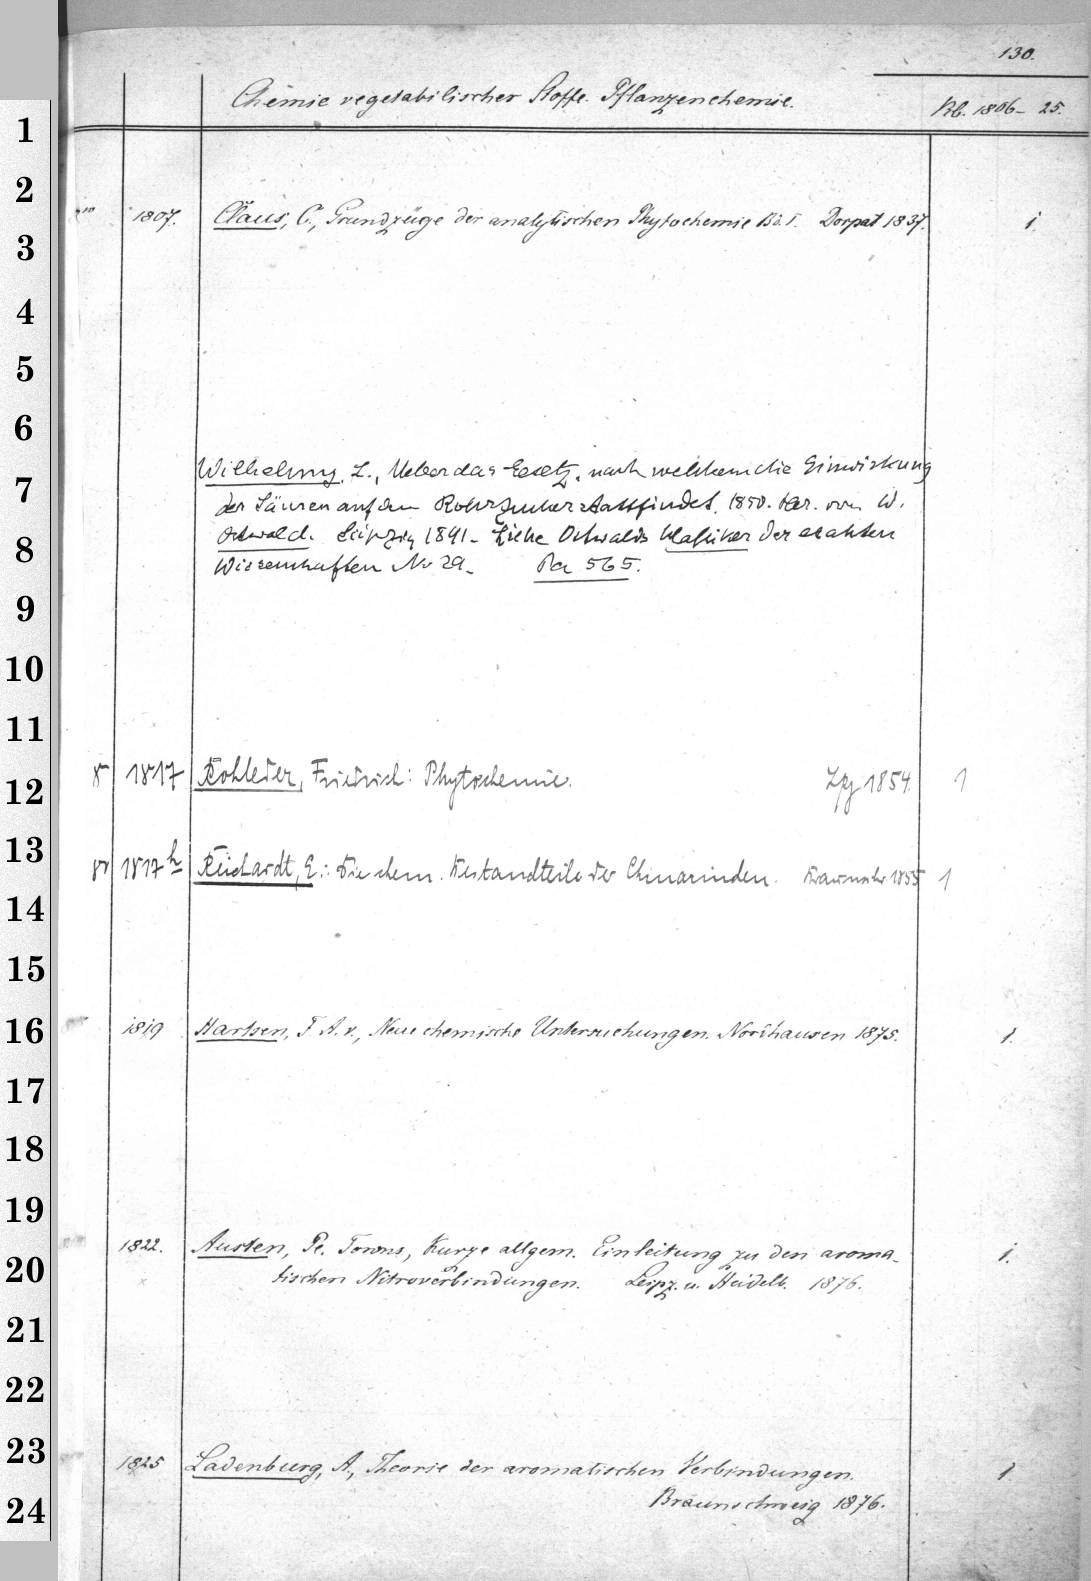 130.
Chemie vegetabilischer Stoffe. Pflanzenchemie.
Rb. 1806-25.
1
2
1807. Claus, C., Grundzüge der analytischen Phytochemie Bd. I. Dorpat 1837. 1.
3
4
5
6
Wilhelmy, L., Ueber das Gesetz, nach welchem die Einwirkung
7
der Säuren auf den Rohrzucker stattfindet, 1850. Her. von W.
8
Ostwald. Leipzig 1891. Siehe Ostwalds Klassiker der exakten
Wissenschaften No 29. Pa 565.
9
10
11
12
8 1817 Rohleder, Friedrich: Phytochemie. Lpzg 1854. 1
13
8 1817h Reichardt, E.: Die chem. Bestandteile der Chinarinden. Braunschw 1855 1
14
15
16
1819 Hartsen, F. A. v., Neue chemische Untersuchungen. Nordhausen 1875. 1.
17
18
19
1822. Austen, Pe. Towns, Kurze allgem. Einleitung zu den aroma- 1.
20
tischen Nitroverbindungen. Leipz. u. Heidelb. 1876.
21
22
23
1825 Ladenburg, A., Theorie der aromatischen Verbindungen. 1
Braunschweig 1876.
24